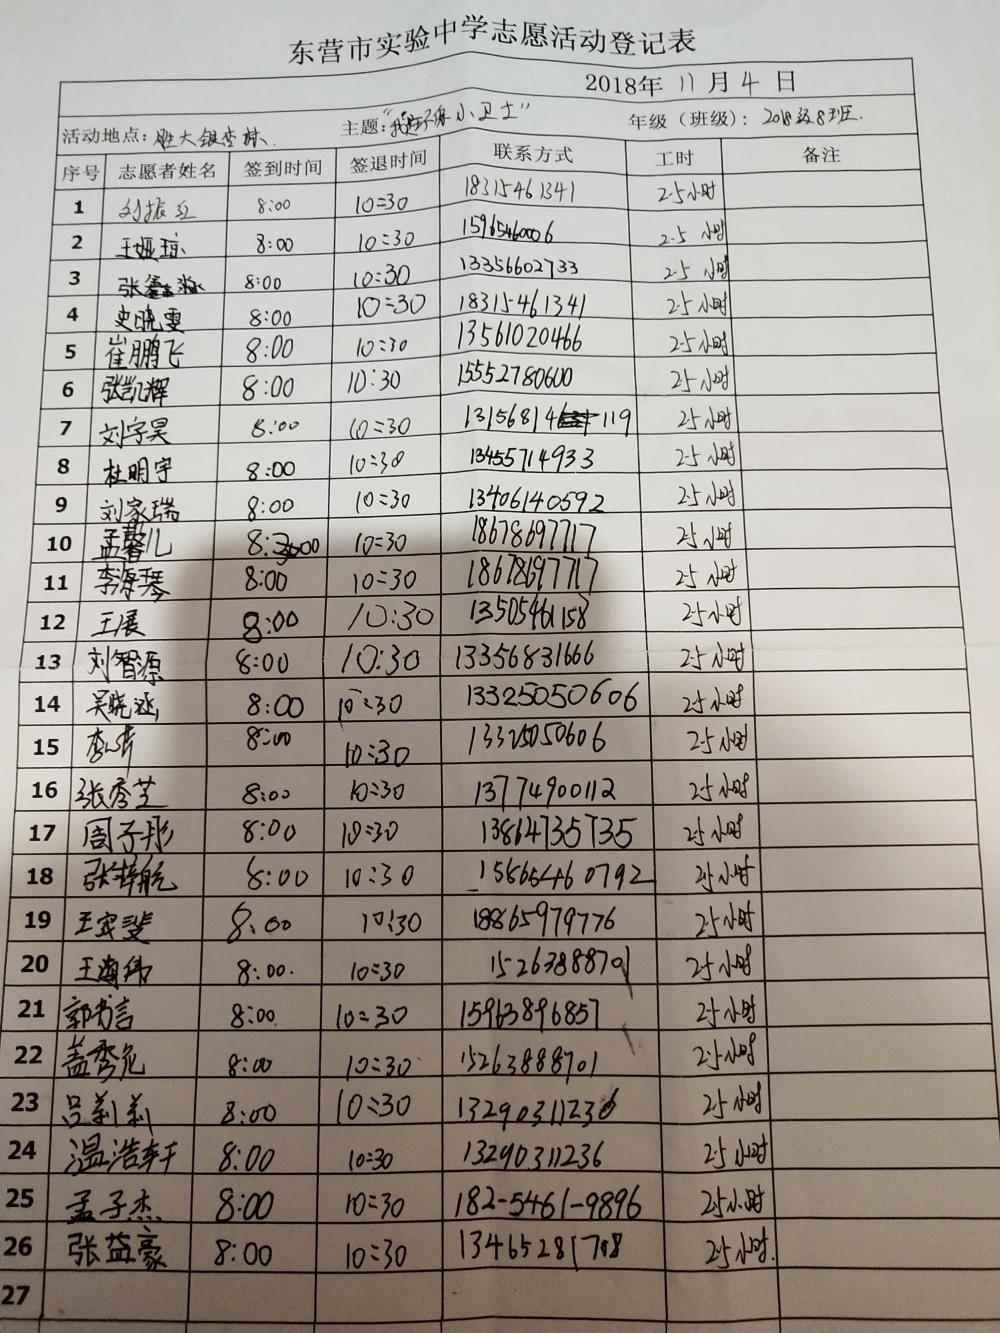 东营市实验中学志愿活动登记表
2018年 11月 4日
活动地点：胜大银杏林 主题："我是环保小卫士" 年级（班级）：2018级8班.
序号 志愿者姓名 签到时间 签退时间 联系方式 工时 备注
1 刘振 8:00 10:30 18315461341 2.5小时
2 王娅琼 8:00 10:30 15965460006 2.5小时
3 张鑫淼 8:00 10:30 13356602733 2.5小时
4 史晓雯 8:00 10:30 18315461341 2.5小时
5 崔鹏飞 8:00 10:30 13561020466 2.5小时
6 张凯辉 8:00 10:30 15552780600 2.5小时
7 刘宇昊 8:00 10:30 13156814 119 2.5小时
8 杜明宇 8:00 10:30 13455714933 2.5小时
9 刘家瑞 8:00 10:30 13406140592 2.5小时
10 孟馨儿 8:00 10:30 18678697717 2.5小时
11 李海琴 8:00 10:30 18678697717 2.5小时
12 王展 8:00 10:30 13505461158 2.5小时
13 刘智源 8:00 10:30 13356831666 2.5小时
14 吴晓涵 8:00 10:30 13325050606 2.5小时
15 李 8:00 10:30 13325050606 2.5小时
16 张秀芝 8:00 10:30 13774900112 2.5小时
17 周子彤 8:00 10:30 13864735735 2.5小时
18 张梓航 8:00 10:30 15865460792 2.5小时
19 王奕斐 8:00 10:30 18865979776 2.5小时
20 王海伟 8:00. 10:30 15263888701 2.5小时
21 郭书言 8:00 10:30 15963896857 2.5小时
22 盖秀允 8:00 10:30 15263888701 2.5小时
23 吕莉莉 8:00 10:30 13290311236 2.5小时
24 温浩轩 8:00 10:30 13290311236 2.5小时
25 孟子杰 8:00 10:30 182-5461-9896 2.5小时
26 张益豪 8:00 10:30 13465281708 2.5小时.
27